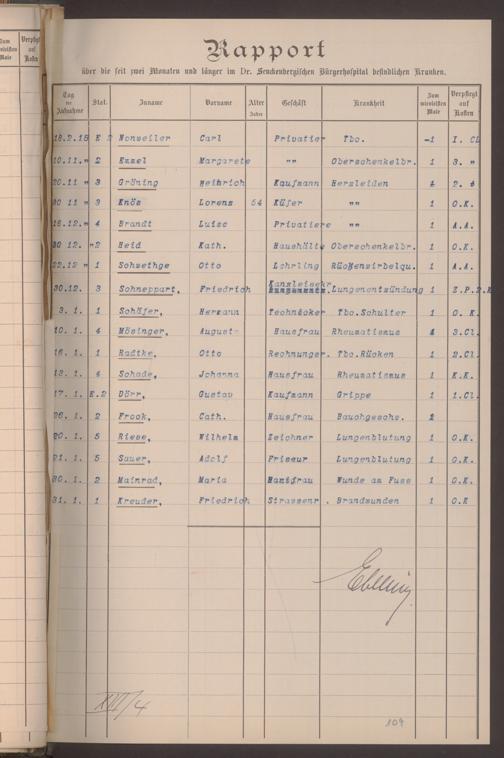 Rapport
über die seit zwei Monaten und länger im Dr. Senckenbergischen Bürgerhospital befindlichen Kranken.
Tag der Aufnahme Stat. Zuname Vorname Alter Jahre Geschäft Krankheit Zum wievielten Male Verpflegt auf Kosten
18.2.18 E 2 Nonweiler Carl Privatier Tbc. 1 I. Cl
10.11. " 2 Enzel Margarete "" Oberschenkelbr. 1 3. "
20.11 " 3 Gröning Heinrich Kaufmann Herzleiden 1 2. "
30 11 " 3 Knös Lorenz 54 Küfer "" 1 O.K.
16.12. " 4 Brandt Luise Privatiere "" 1 A.A.
30 12. " 2 Heid Kath. Haushält. Oberschenkelbr. 1 O.K.
22.12 " 1 Schwethge Otto Lehrling 1 A.A.
30.12. 3 Schneppart, Friedrich Kanzleisekr. Lungenentzündung 1
3. 1. 1 Schäfer, Hermann Technicker Tbc.Schulter 1 O. K.
10. 1. 4 Mösinger, August Hausfrau Rheumatismus 4 3.Cl.
16. 1. 1 Radtke, Otto Rechnunger. Tbc.Rücken 1 2.Cl.
13. 1. 4 Schade, Johanna Hausfrau Rheumatismus 1 K.K.
17. 1. E.2 Dörr, Gustav Kaufmann Grippe 1 1.Cl.
26. 1. 2 Frook, Cath. Hausfrau Bauchgeschw. 2
20. 1. 5 Riese, Wilhelm Zeichner Lungenblutung 1 O.K.
21. 1. 5 Sauer, Adolf Friseur Lungenblutung 1 O.K.
30. 1. 2 Mainrad, Maria Hausfrau Wunde am Fuss 1 O.K.
31. 1. 1 Kreuder, Friedrich Strassenr . Brandwunden 1 O.K
Ebeling
XIII/4
109